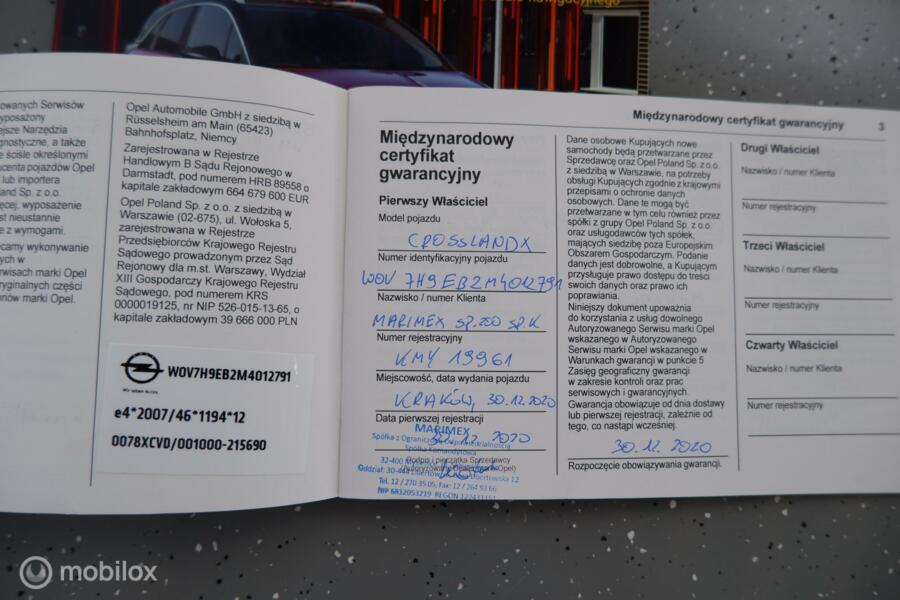 nawigacyjnego
owanych Serwisów
yposażony
ejsze Narzędzia
gnostyczne, a także
e ściśle określonymi
ucenta pojazdów Opel
lub importera
land Sp. z o.o.
ęcej, wyposażenie
st nieustannie
e z wymogami.
camy wykonywanie
ych w
rwisach marki Opel
ryginalnych części
nów marki Opel.
Opel Automobile GmbH z siedzibą w
Rüsselsheim am Main (65423)
Bahnhofsplatz, Niemcy
Zarejestrowana w Rejestrze
Handlowym B Sądu Rejonowego w
Darmstadt, pod numerem HRB 89558 o
kapitale zakładowym 664 679 600 EUR
Opel Poland Sp. z o.o. z siedzibą w
Warszawie (02-675), ul. Wołoska 5,
zarejestrowana w Rejestrze
Przedsiębiorców Krajowego Rejestru
Sądowego prowadzonym przez Sąd
Rejonowy dla m.st. Warszawy, Wydział
XIII Gospodarczy Krajowego Rejestru
Sądowego, pod numerem KRS
0000019125, nr NIP 526-015-13-65, o
kapitale zakładowym 39 666 000 PLN
W0V7H9EB2M4012791
e4*2007/46*1194*12
0078XCVD/001000-215690
Międzynarodowy certyfikat gwarancyjny 3
Międzynarodowy
certyfikat
gwarancyjny
Pierwszy Właściciel
Model pojazdu
CROSSLANDX
Numer identyfikacyjny pojazdu
WOV 7H9EB2M4012791
Nazwisko / numer Klienta
MARIMEX SP. ZOO SP.K
Numer rejestracyjny
KMY 19961
Miejscowość, data wydania pojazdu
KRAKÓW, 30.12.2020
Data pierwszej rejestracji
30.12.2020
MARIMEX
Spółka z Ograniczoną Odpowiedzialnością
Spółka Komandytowa
Podpis i pieczątka Sprzedawcy
32-400
Oddział: 30-444 Libertów
Tel. 12 / 270 35 05, Fax: 12 / 264 93 66
NIP 6812053219 REGON
Dane osobowe Kupujących nowe
samochody będą przetwarzane przez
Sprzedawcę oraz Opel Poland Sp. z o.o.
z siedzibą w Warszawie, na potrzeby
obsługi Kupujących zgodnie z krajowymi
przepisami o ochronie danych
osobowych. Dane te mogą być
przetwarzane w tym celu również przez
spółki z grupy Opel Poland Sp. z o.o.
oraz usługodawców tych spółek,
mających siedzibę poza Europejskim
Obszarem Gospodarczym. Podanie
danych jest dobrowolne, a Kupującym
przysługuje prawo dostępu do treści
swoich danych oraz prawo ich
poprawiania.
Niniejszy dokument upoważnia
do korzystania z usług dowolnego
Autoryzowanego Serwisu marki Opel
wskazanego w Autoryzowanego
Serwisu marki Opel wskazanego w
Warunkach gwarancji w punkcie 5
Zasięg geograficzny gwarancji
w zakresie kontroli oraz prac
serwisowych i gwarancyjnych.
Gwarancja obowiązuje od dnia dostawy
lub pierwszej rejestracji, zależnie od
tego, co nastąpi wcześniej.
30.12.2020
Rozpoczęcie obowiązywania gwarancji.
Drugi Właściciel
Nazwisko / numer Klienta
Numer rejestracyjny
Trzeci Właściciel
Nazwisko / numer Klienta
Numer rejestracyjny
Czwarty Właściciel
Nazwisko / numer Klienta
Numer rejestracyjny
mobilox